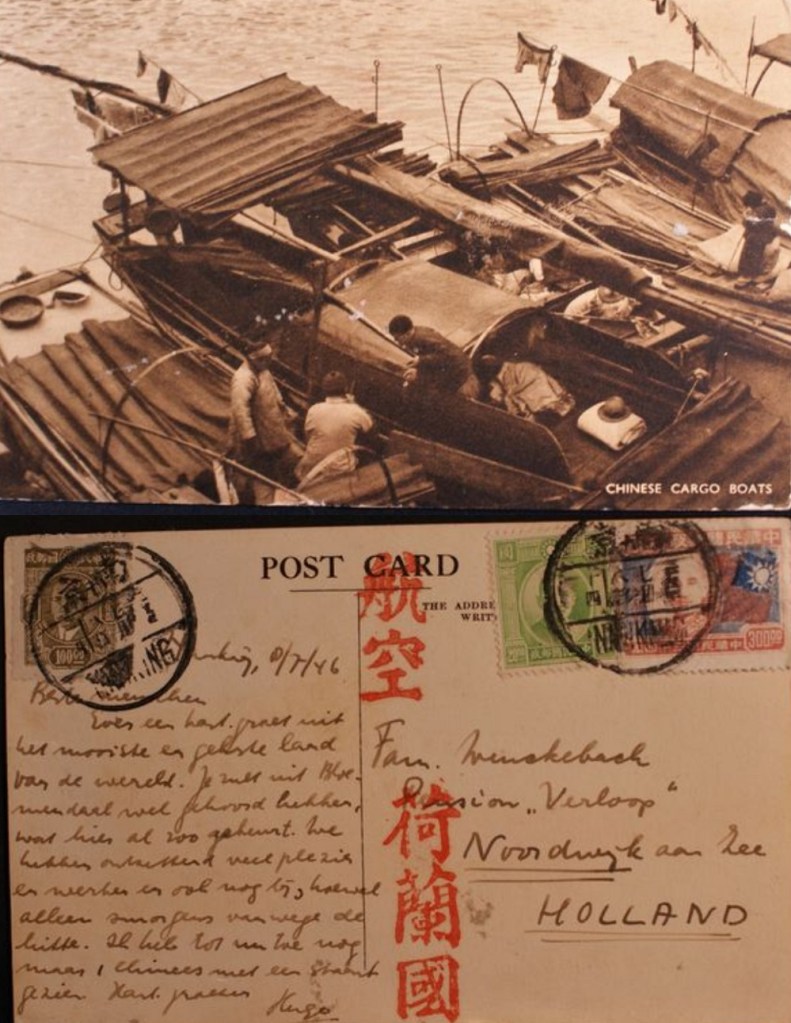 CHINESE CARGO BOATS
POST CARD
THE ADDRE
WRIT
航空
荷蘭國
100
300
NANKING
NANKING
8/7/46
Beste
Even een hart. groet uit
het mooiste en gekste land
van de wereld. Je zult uit Bloe-
mendaal wel gehoord hebben,
wat hier al zoo gebeurt. We
hebben ontzettend veel plezier
en werken er ook nog bij, hoewel
alleen smorgens vanwege de
hitte. Ik heb tot nu toe nog
maar 1 chinees met een staart
gezien Hart. groeten
Hugo
Fam. Wenckebach
Pension „Verloop"
Noordwijk aan Zee
HOLLAND